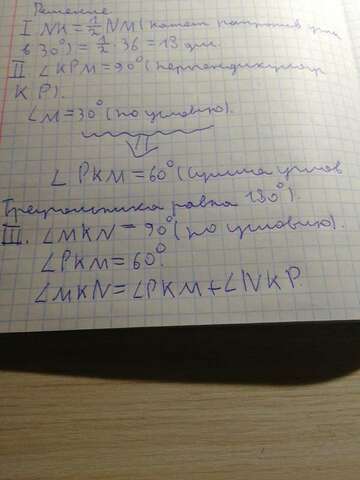 Решение
I NK = 1/2 NM (катет напротив угла
в 30°) = 1/2 · 36 = 18 дм.
II ∠KPM = 90° (перпендикуляр
KP).
∠M = 30° (по условию).
∠PKM = 60° (сумма углов
треугольника равна 180°).
III. ∠MKN = 90° (по условию).
∠PKM = 60°.
∠MKN = ∠PKM + ∠NKP.